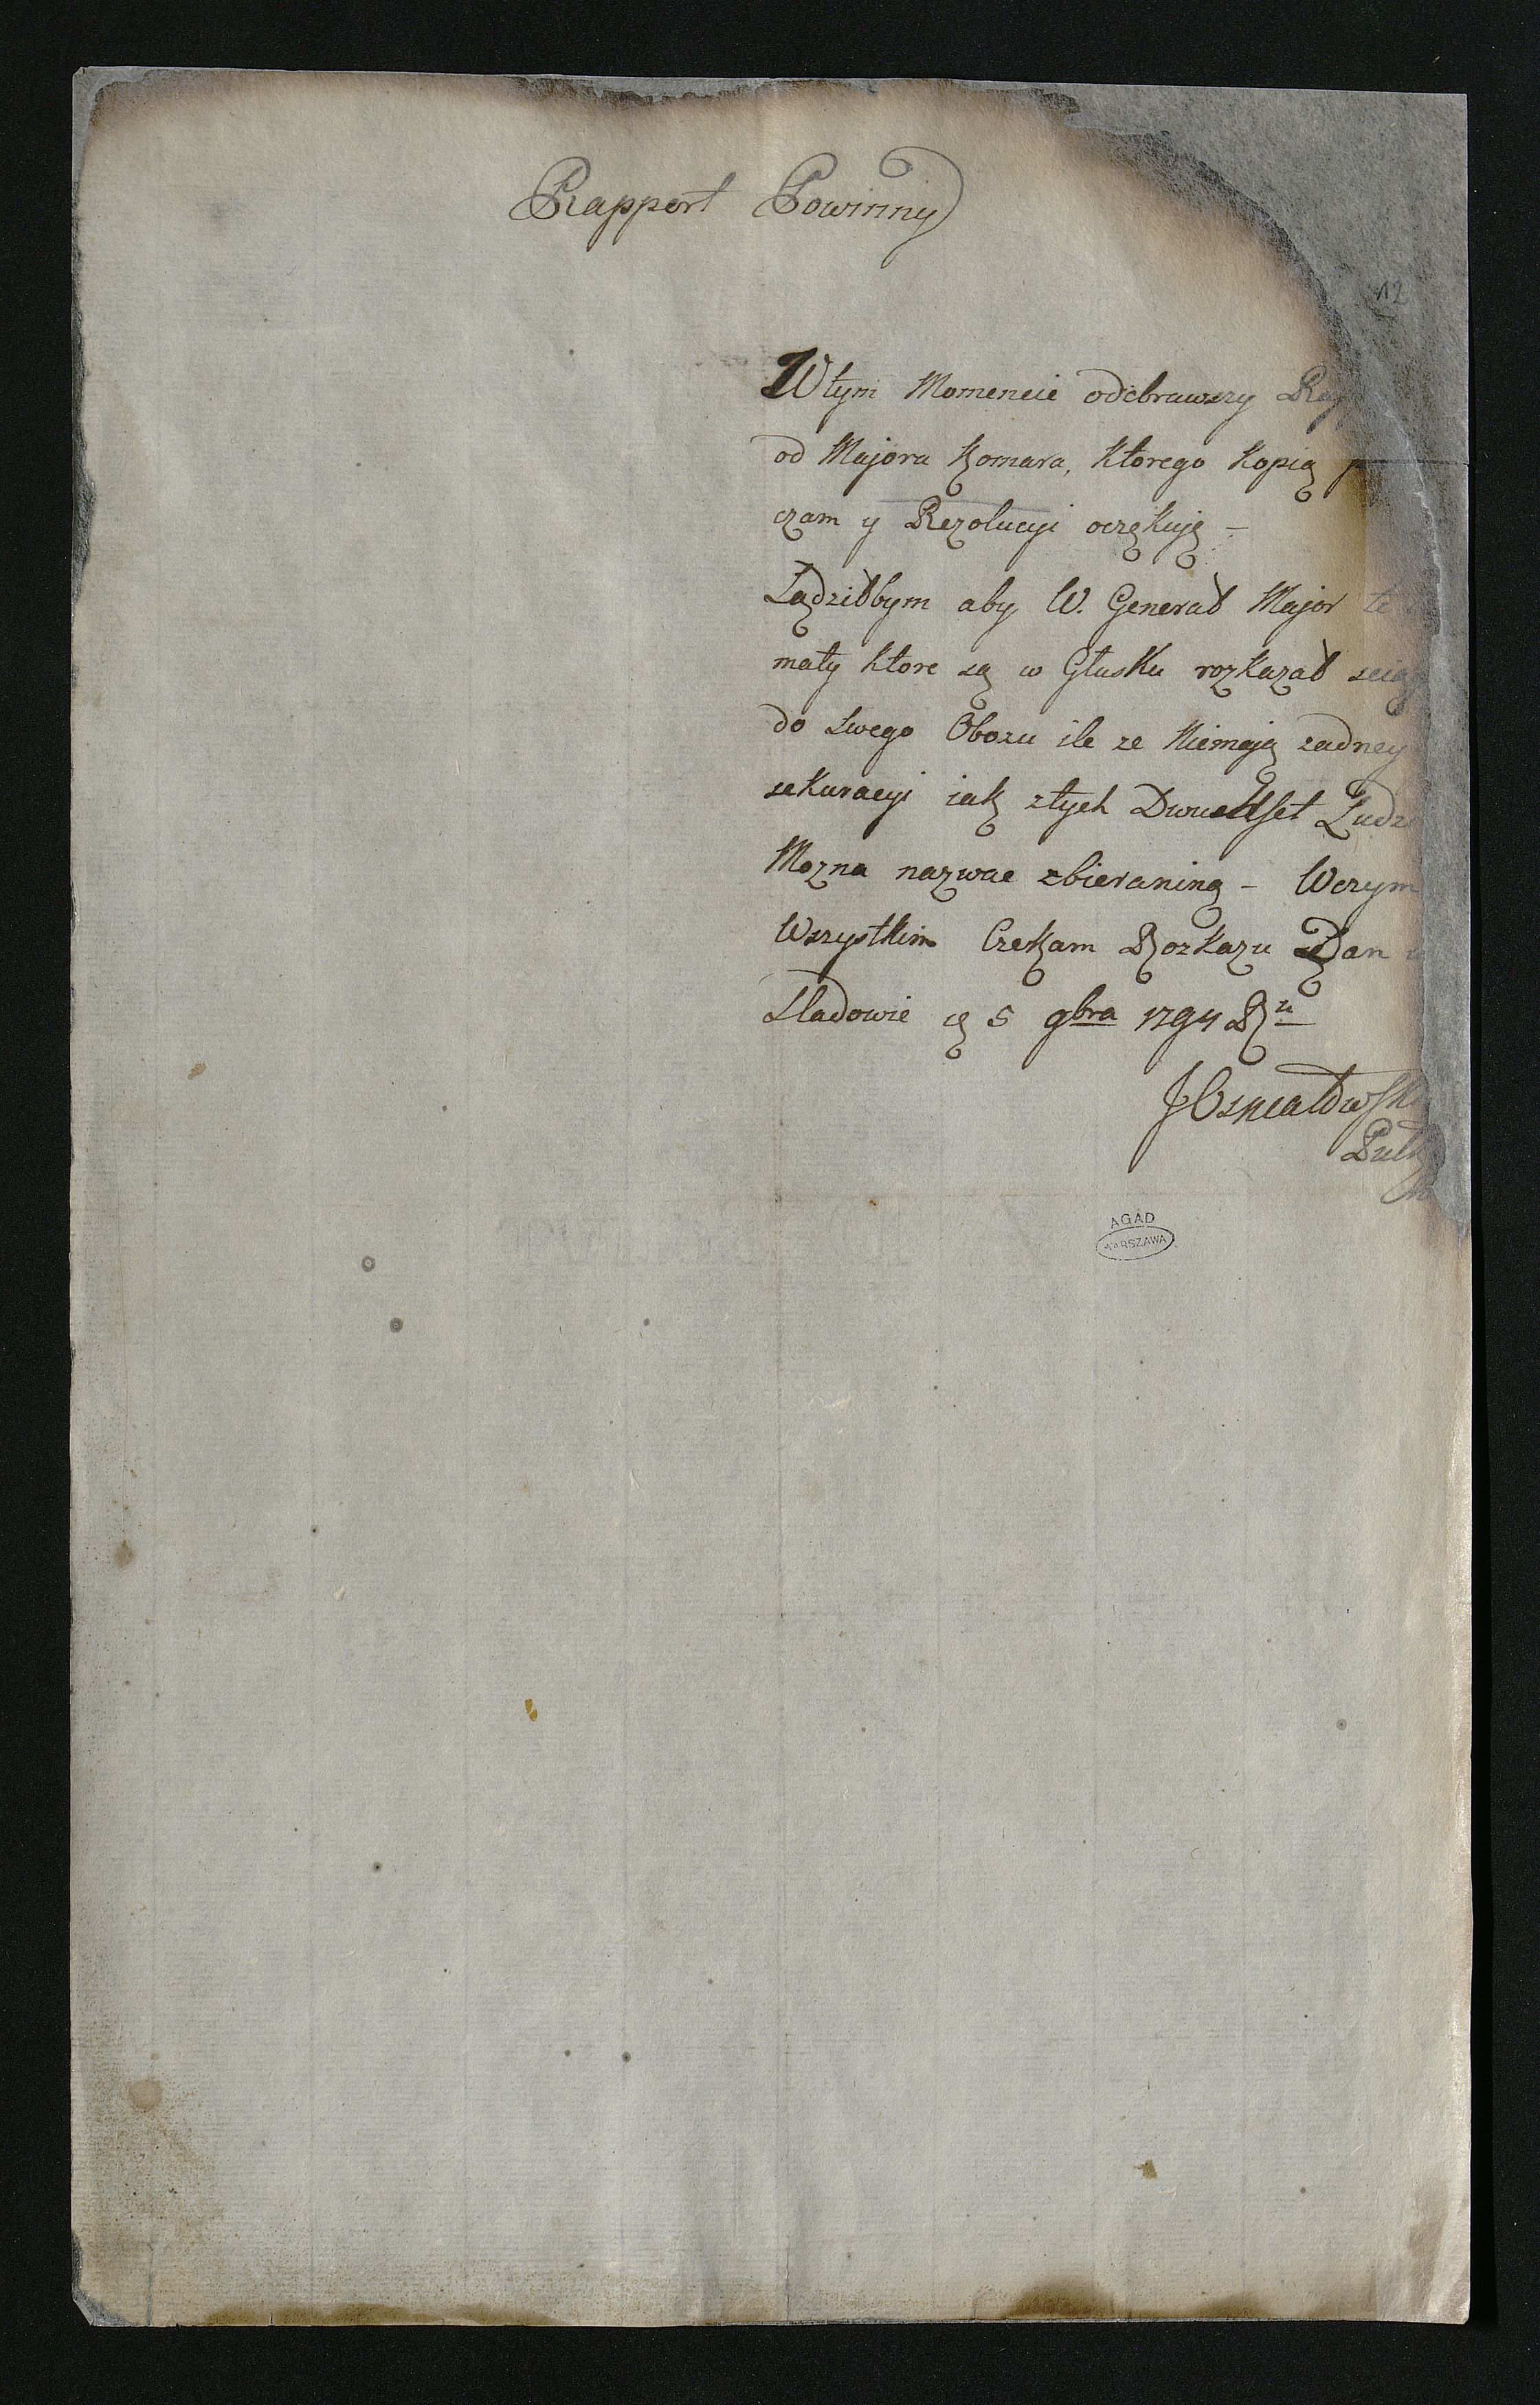 Rapport Powinny
12
W tym Momencie odebrawszy
od Majora Komara, ktorego kopią
czam y Rezolucyi oczękuję –
Sądziłbym aby W. Generał Major te
maty ktore są w Głusku rozkazał
do swego Obozu ile ze Niemają zadney
sekuracyi iak z tych Dwuchset Ludz
Mozna nazwac zbieraniną – W czym
Wszystkim Czekam Rozkazu Dan
Sladowie d 5 9bra 1794 Ru
AGAD
WARSZAWA